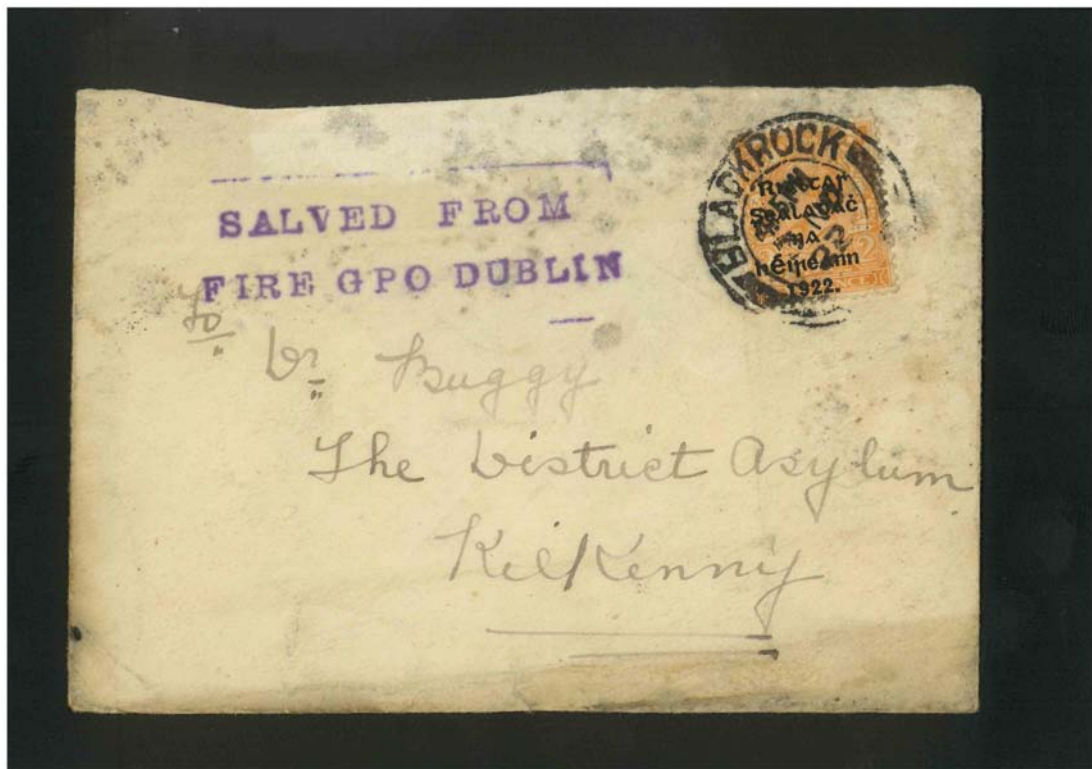 SALVED FROM
FIRE GPO DUBLIN
BLACKROCK
22
Rialtas
Sealadaċ
na
hÉireann
1922.
To
Dr Buggy
The District Asylum
Kilkenny